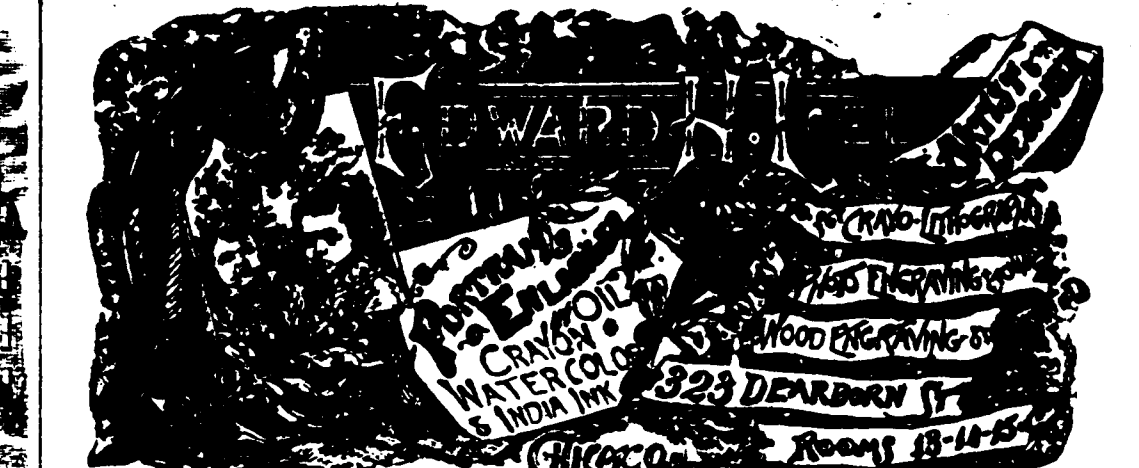 EDWARD
ARTIST &
DESIGNER
PORTRAITS
ENLARGED
CRAYON OIL
WATERCOLOR
& INDIA INK
CRAYO-LITHOGRAPH
PHOTO ENGRAVING &
WOOD ENGRAVING
323 DEARBORN ST
ROOMS 13-14-15
CHICAGO